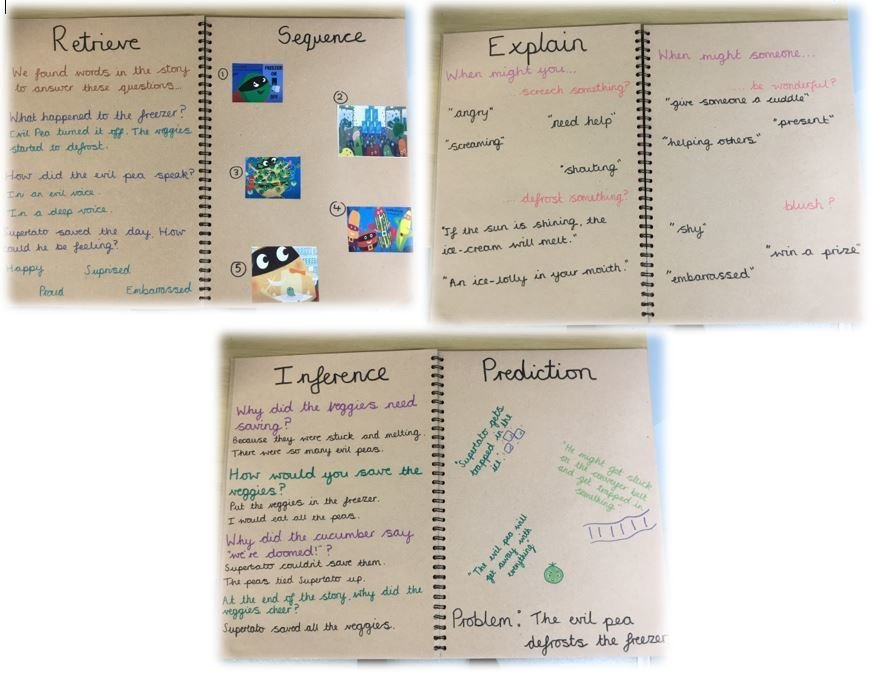 Retrieve
We found words in the story
to answer these questions...
What happened to the freezer?
Evil Pea turned it off. The veggies
started to defrost.
How did the evil pea speak?
In an evil voice.
In a deep voice.
Supertato saved the day. How
could he be feeling?
Happy
Suprised
Proud
Embarrassed
Sequence
1
2
3
4
5
Explain
When might you...
screech something?
"angry"
"need help"
"screaming"
"shouting"
... defrost something?
"If the sun is shining, the
ice-cream will melt."
"An ice-lolly in your mouth."
When might someone...
... be wonderful?
"give someone a cuddle"
"present"
"helping others"
blush?
"shy"
"win a prize"
"embarrassed"
Inference
Why did the veggies need
saving?
Because they were stuck and melting.
There were so many evil peas.
How would you save the
veggies?
Put the veggies in the freezer.
I would eat all the peas.
Why did the cucumber say
"we're doomed!"?
Supertato couldn't save them.
The peas tied Supertato up.
At the end of the story, why did the
veggies cheer?
Supertato saved all the veggies.
Prediction
"Supertato gets
trapped in the
ice."
"He might get stuck
on the conveyer belt
and get trapped in
something."
"The evil pea will
get away with
everything"
Problem: The evil pea
defrosts the freezer